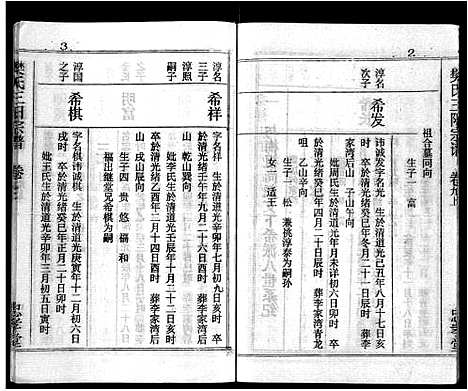 樊氏三阳宗谱 卷九上
2
祖合墓同向
生子一 富
淳名
次子
希发
字名发 讳诚发字名光 生於清道光己丑年八月十七日亥时
卒於清光绪癸巳年冬月二十一日辰时 葬李
家湾后山 子山午向
妣周氏生於清道光年月未详初六日辰时 卒
於清光绪癸巳年四月二十日辰时 葬李家湾青龙
咀 乙山辛向
生子一 松 兼祧淳泰为嗣孙
女一 适王
3
淳名
三子
淳照
嗣子
希祥
字名祥 生於清道光辛卯年七月初九日亥时 卒
於清光绪壬午年九月二十六日酉时 葬李家湾后
山 乾山巽向
妣李氏生於清道光壬辰年十月二十二日亥时
卒於清光绪乙酉年二月十四日酉时 葬李家湾后
山 戌山辰向
生子四 贵 悠 福 和
福出继堂兄希棋为嗣
淳国
之子
希棋
字名棋讳诚棋 生於清道光庚寅年十二月初六日
戌时 卒於清光绪癸巳年正月二十日卯时
妣王氏生於清道光辛卯年三月初五日寅时